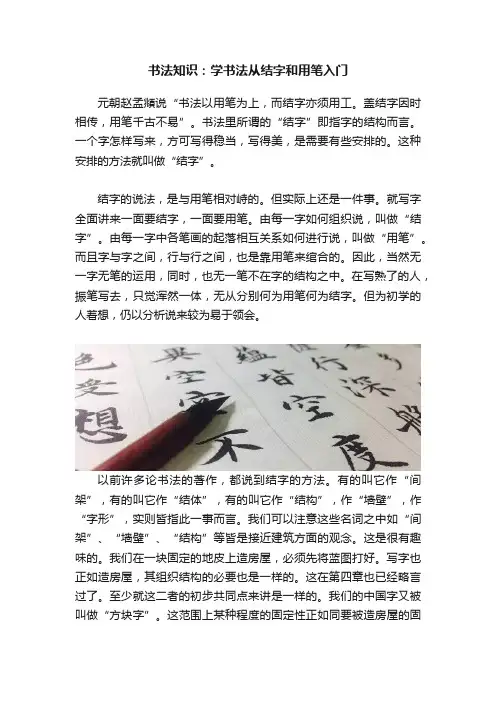 书法知识：学书法从结字和用笔入门
元朝赵孟頫说“书法以用笔为上，而结字亦须用工。盖结字因时
相传，用笔千古不易”。书法里所谓的“结字”即指字的结构而言。
一个字怎样写来，方可写得稳当，写得美，是需要有些安排的。这种
安排的方法就叫做“结字”。
结字的说法，是与用笔相对峙的。但实际上还是一件事。就写字
全面讲来一面要结字，一面要用笔。由每一字如何组织说，叫做“结
字”。由每一字中各笔画的起落相互关系如何进行说，叫做“用笔”。
而且字与字之间，行与行之间，也是靠用笔来绾合的。因此，当然无
一字无笔的运用，同时，也无一笔不在字的结构之中。在写熟了的人，
振笔写去，只觉浑然一体，无从分别何为用笔何为结字。但为初学的
人着想，仍以分析说来较为易于领会。
色受想
异空空不
蕴皆空
行深
度
以前许多论书法的著作，都说到结字的方法。有的叫它作“间
架”，有的叫它作“结体”，有的叫它作“结构”，作“墙壁”，作
“字形”，实则皆指此一事而言。我们可以注意这些名词之中如“间
架”、“墙壁”、“结构”等皆是接近建筑方面的观念。这是很有趣
味的。我们在一块固定的地皮上造房屋，必须先将蓝图打好。写字也
正如造房屋，其组织结构的必要也是一样的。这在第四章也已经略言
过了。至少就这二者的初步共同点来讲是一样的。我们的中国字又被
叫做“方块字”。这范围上某种程度的固定性正如同要被造房屋的固